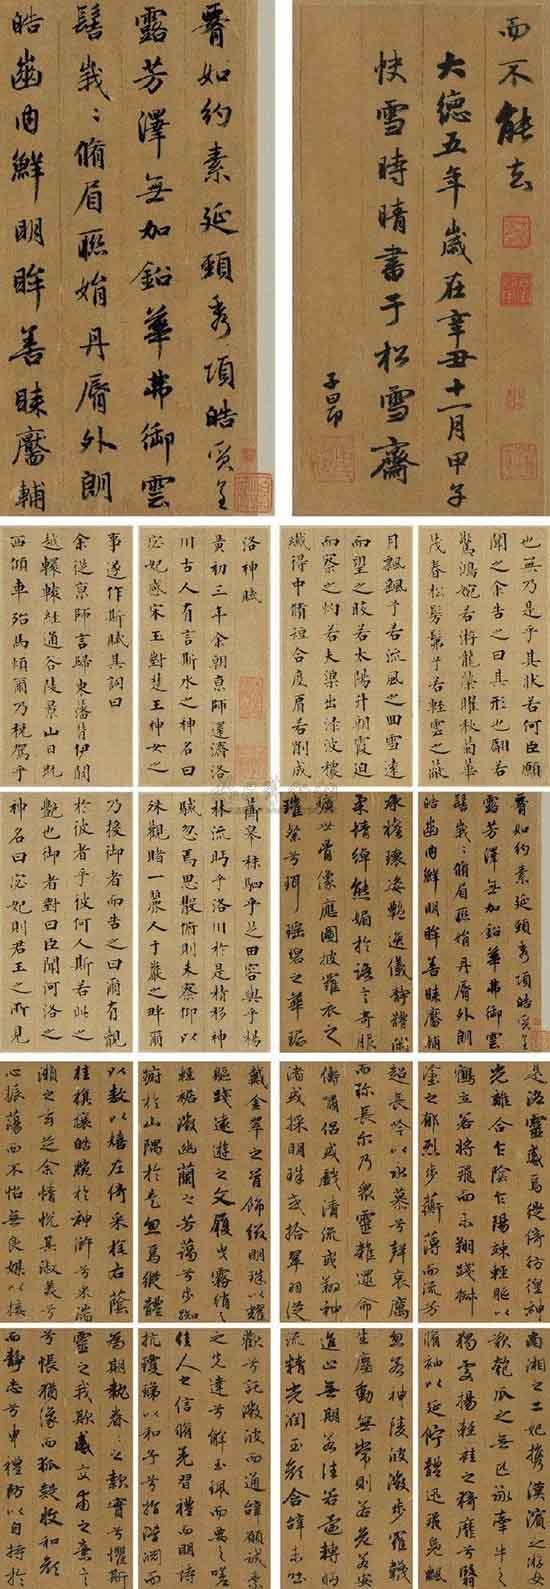 而不能去
大德五年歲在辛丑十一月甲子
快雪時晴書于松雪齋
子昂
如約素延頸秀項皓質呈
露芳澤無加鉛華弗御雲
髻峩〻脩眉聯娟丹脣外朗
皓齒内鮮明眸善睞靨輔
洛神賦
黃初三年余朝京師還濟洛
川古人有言斯水之神名曰
宓妃感宋玉對楚王神女之
事遂作斯賦其詞曰
余從京師言歸東藩背伊闕
越轘轅經通谷陵景山日既
西傾車殆馬煩爾乃稅駕乎
蘅皋秣駟乎芝田容與乎楊
林流眄乎洛川於是精移神
駭忽焉思散俯則未察仰以
殊觀睹一麗人于巖之畔爾
乃援御者而告之曰爾有覿
於彼者乎彼何人斯若此之
艷也御者對曰臣聞河洛之
神名曰宓妃則君王之所見
也無乃是乎其狀若何臣願
聞之余告之曰其形也翩若
驚鴻婉若游龍榮曜秋菊華
茂春松髣髴乎若輕雲之蔽
月飄颻乎若流風之回雪遠
而望之皎若太陽升朝霞迫
而察之灼若夫渠出淥波穠
纖得中脩短合度肩若削成
如約素延頸秀項皓質呈
露芳澤無加鉛華弗御雲
髻峩〻脩眉聯娟丹脣外朗
皓齒内鮮明眸善睞靨輔
承權瓌姿艷逸儀靜體閑
柔情綽態媚於語言奇服
曠世骨像應圖披羅衣之
璀粲兮珥瑤碧之華琚
戴金翠之首飾綴明珠以耀
軀踐遠遊之文履曳霧綃之
輕裾微幽蘭之芳藹兮步踟
躕於山隅於是忽焉縱體
以敖以嬉左倚采旄右蔭
桂旗攘皓腕於神滸兮采湍
瀨之玄芝余情悅其淑美兮
心振蕩而不怡無良媒以接
歡兮託微波而通辭願誠素
之先達兮解玉珮而要之嗟
佳人之信脩羌習禮而明詩
抗瓊珶以和予兮指潛淵而
為期執眷〻之款實兮懼斯
靈之我欺感交甫之棄言
兮悵猶豫而狐疑收和顏
而靜志兮申禮防以自持於
是洛靈感焉徙倚彷徨神
光離合乍陰乍陽竦輕軀以
鶴立若將飛而未翔踐椒
塗之郁烈步蘅薄而流芳
超長吟以永慕兮聲哀厲
而彌長爾乃衆靈雜遝命
儔嘯侶或戲清流或翔神
渚或採明珠或拾翠羽從
南湘之二妃攜漢濱之游女
歎匏瓜之無匹詠牽牛之
獨處揚輕袿之猗靡兮翳
脩袖以延佇體迅飛鳧飄
忽若神陵波微步羅韈
生塵動無常則若危若安
進止無期若往若還轉眄
流精光潤玉顏含辭未吐